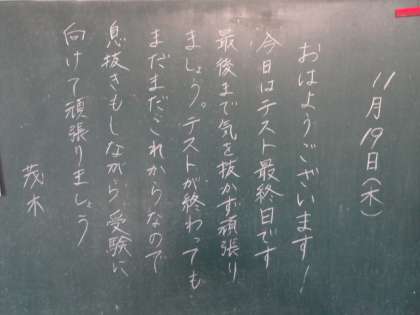 11月19日(木)
おはようございます!
今日はテスト最終日です
最後まで気を抜かず頑張り
ましょう。テストが終わっても
まだまだこれからなので
息抜きもしながら受験に
向けて頑張りましょう
茂木